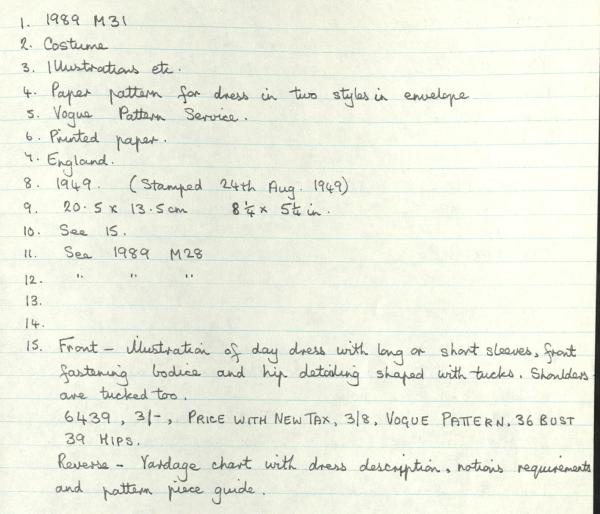 1. 1989 M31
2. Costume
3. Illustrations etc.
4. Paper pattern for dress in two styles in envelope
5. Vogue Pattern Service.
6. Printed paper.
7. England.
8. 1949. (Stamped 24th Aug. 1949)
9. 20.5 x 13.5cm 8¼ x 5¼ in.
10. See 15.
11. See 1989 M28
12. " " "
13.
14.
15. Front - illustration of day dress with long or short sleeves, front
fastening bodice and hip detailing shaped with tucks. Shoulders
are tucked too.
6439, 3/-, PRICE WITH NEW TAX, 3/8, VOGUE PATTERN. 36 BUST
39 HIPS.
Reverse - Yardage chart with dress description, notions requirements
and pattern piece guide.